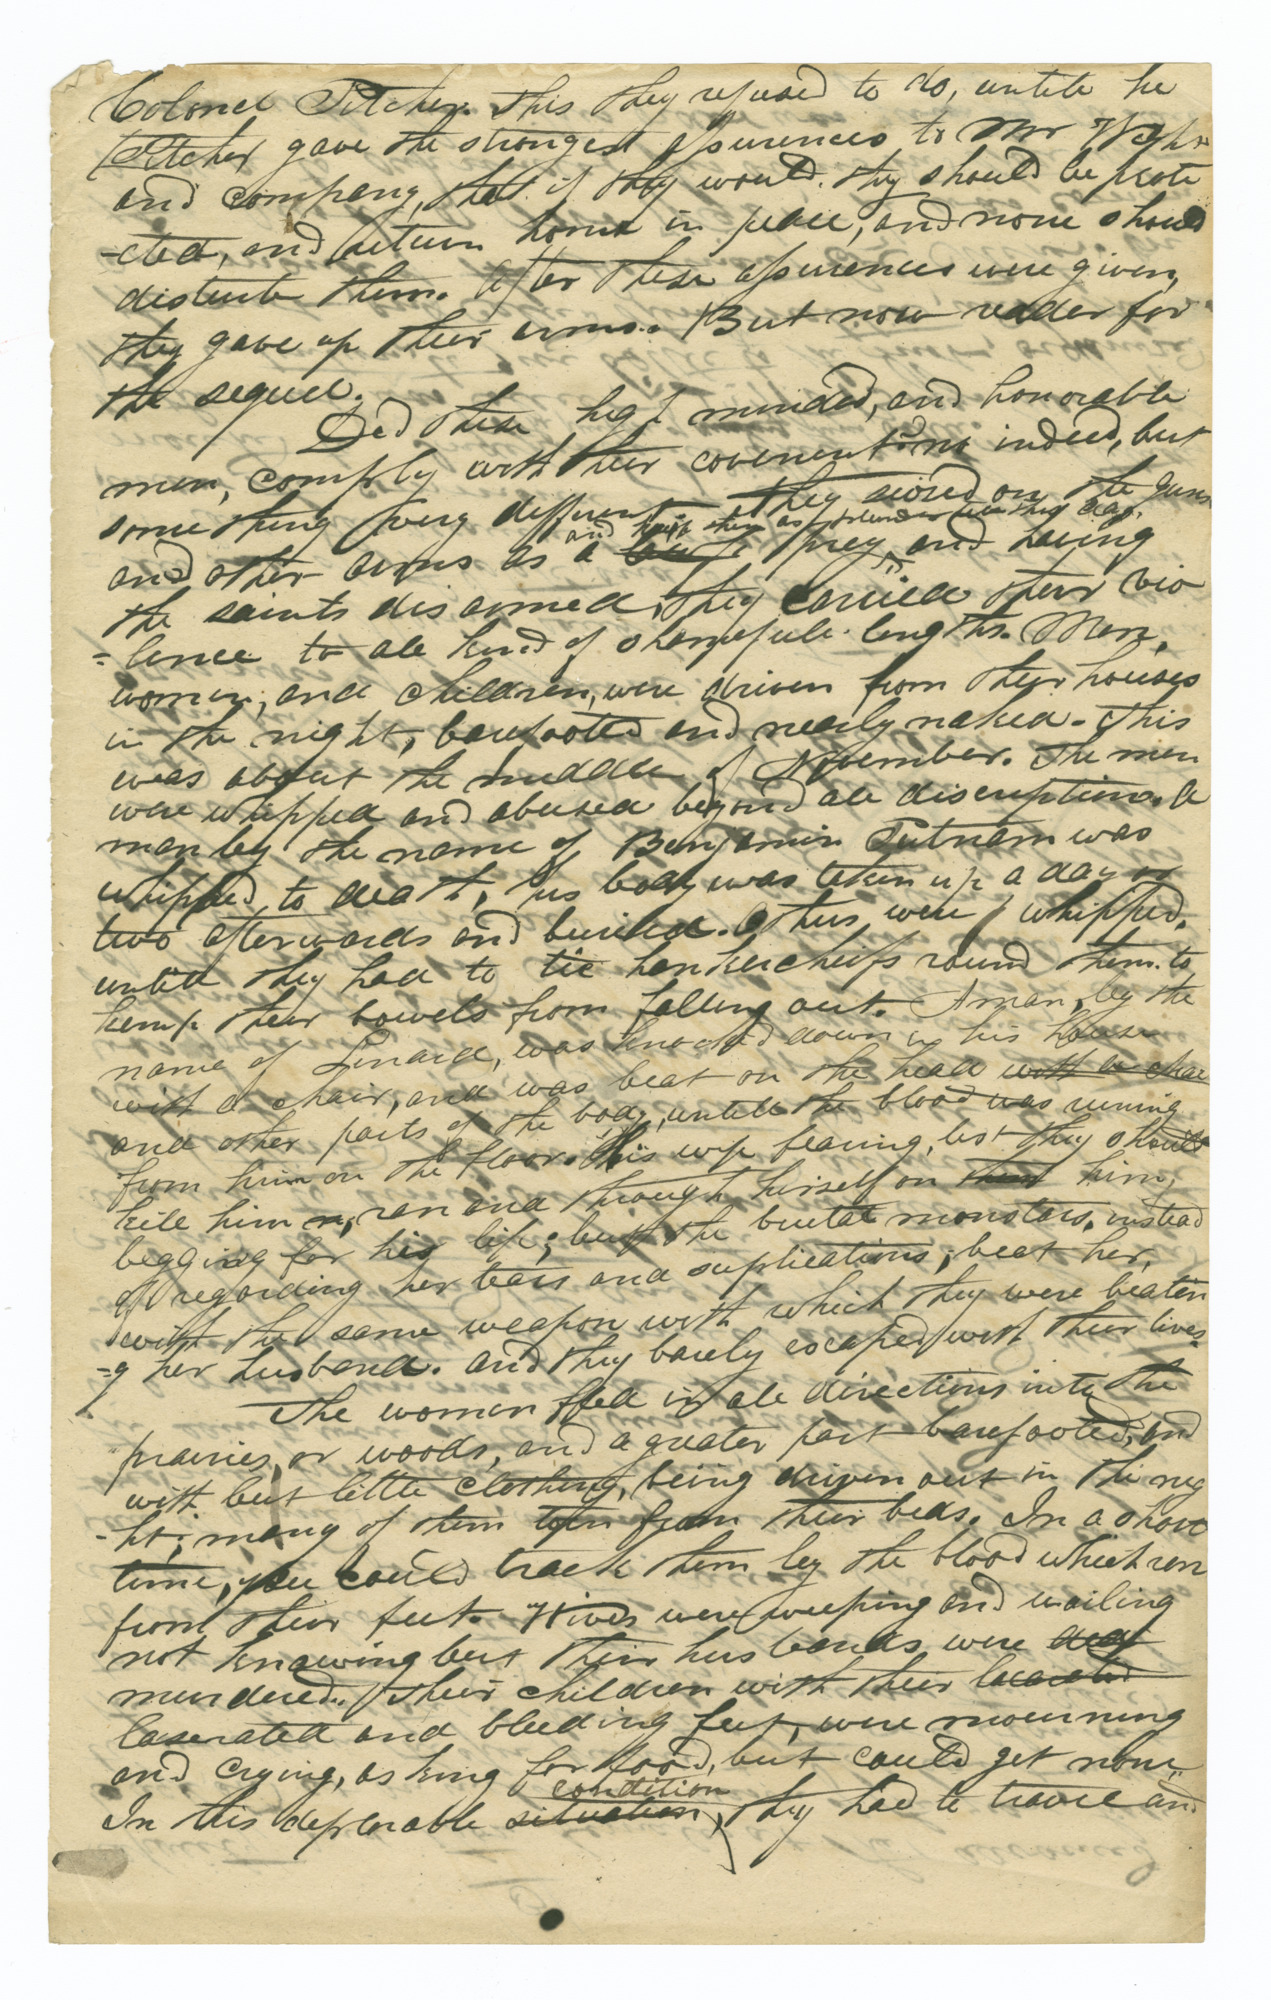 Colonel Pitcher. This they refused to do, untill he
Pitcher gave the strongest assurences to Mr
and company, that if they would, they should be prote
-cted, and return home in peace, and none should
disturb them. After these assurences were given,
they gave up their arms. But now reader for
the sequel.
Did these high minded, and honorable
men, comply with their covenent? no indeed, but
some thing very different they siesed on the guns
and kept them as plunder
and other arms as a prey, and having
the saints disarmed, they carried their vio
=lence to all kind of shamefull lengths. Men,
women, and children, were driven from their houses
in the night, barefooted and nearly naked. This
was about the middle of November. The men
were whipped and abused beyond all discription. A
man by the name of Benjamin Putnam was
whipped to death, his body was taken up a day or
two afterwards and buried. Others were whipped,
untill they had to tie hankercheifs round them to
keep their bowels from falling out. A man, by the
name of Linard, was knocked down in his house
with a chair, and was beat on the head with a chai
and other parts of the body, untill the blood was runing
from him on the floor. His wife fearing, lest they should
kill him, ran and through hirself on him,
begging for his life; but the brutal monsters, instead
of regarding her tears and suplications, beat her,
with the same weapon with which they were beatin
=g her husband. and they barely escaped with their lives.
The women fled in all directions into the
prairies, or woods, and a greater part barefooted, and
with but little clothing, being driven out in the nig
-ht; many of them torn from their beds. In a short
time, you could track them by the blood which ran
from their feet. Wives were weeping and wailing
not knowing but their husbands were
murdered. Their children with their
laserated and bleeding feet, were mourning
and crying, asking for food, but could get none.
condition
In this deplorable situation, they had to travil and